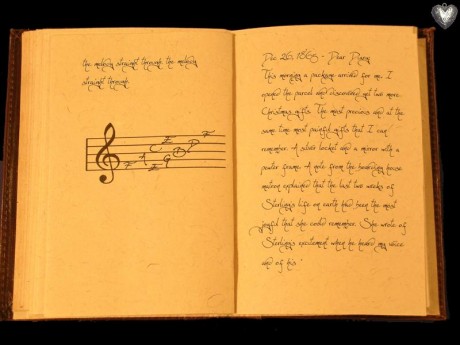 the melody straight through. the melody
straight through.
E A E C E G D E
Dec. 26, 1865 - Dear Diary
This morning a package arrived for me. I
opened the parcel and discovered yet two more
Christmas gifts. The most precious and at the
same time most painful gifts that I can
remember. A silver locket and a mirror with a
pewter frame. A note from the boarding house
matron explained that the last two weeks of
Sterling's life on earth had been the most
joyful that she could remember. She wrote of
Sterling's excitement when he heard my voice
and of his